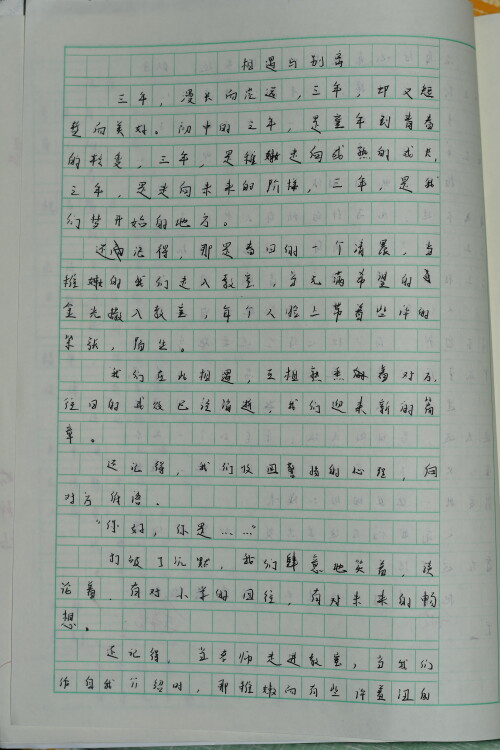 相遇与别离
三年，漫长而应远，三年，却又短
楚而美好。初中的三年，是童年到青春
的转变，三年，是稚嫩走向成熟的成长，
三年，是走向未来的阶梯，三年，是我
们梦开始的地方。
还记得，那是春日的一个清晨，当
稚嫩的我们走入教室，当充满希望的
金光撒入教室，每个人脸上带着些许的
紧张，陌生。
我们在此相遇，互相熟悉着对方，
往日的已经消逝，我们迎来新的篇
章。
还记得，我们收回紧张的心理，向
对方
“你好，你是……”
打破了沉默，我们肆意地笑着，谈
论着，有对小学的回往，有对未来的畅
想。
还记得，当老师走进教室，当我们
作自我介绍时，那稚嫩而有些许羞涩的